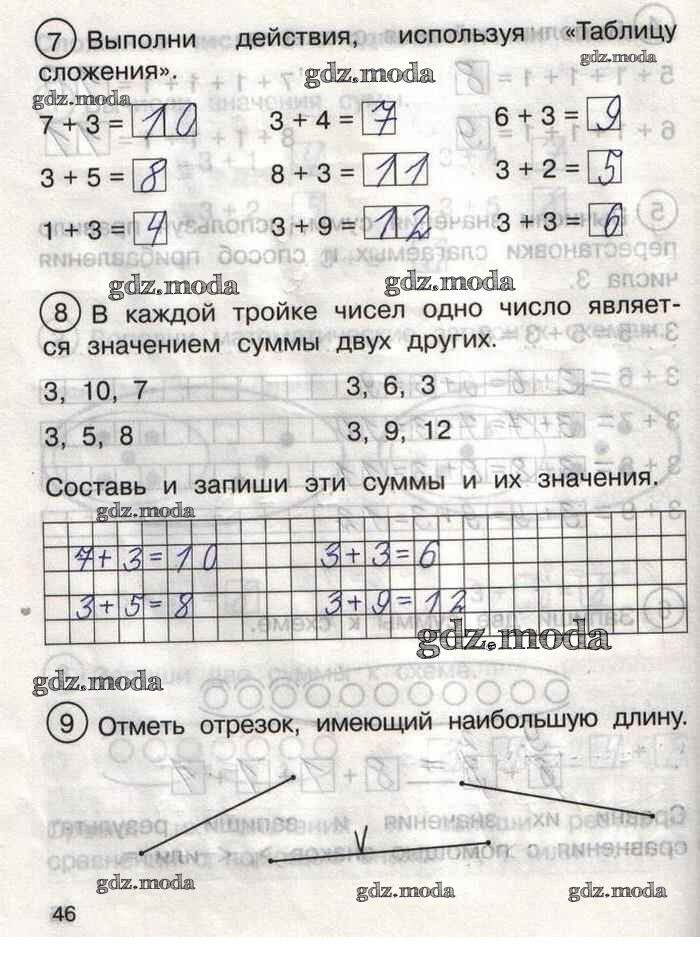 7 Выполни действия, используя «Таблицу
gdz.moda gdz.moda
сложения».
gdz.moda
7 + 3 = 10 3 + 4 = 7 6 + 3 = 9
3 + 5 = 8 8 + 3 = 11 3 + 2 = 5
1 + 3 = 4 3 + 9 = 12 3 + 3 = 6
gdz.moda gdz.moda
8 В каждой тройке чисел одно число являет-
ся значением суммы двух других.
3, 10, 7 3, 6, 3
3, 5, 8 3, 9, 12
Составь и запиши эти суммы и их значения.
gdz.moda
7+3=10 3+3=6
3+5=8 3+9=12
gdz.moda
gdz.moda
9 Отметь отрезок, имеющий наибольшую длину.
gdz.moda gdz.moda gdz.moda
46